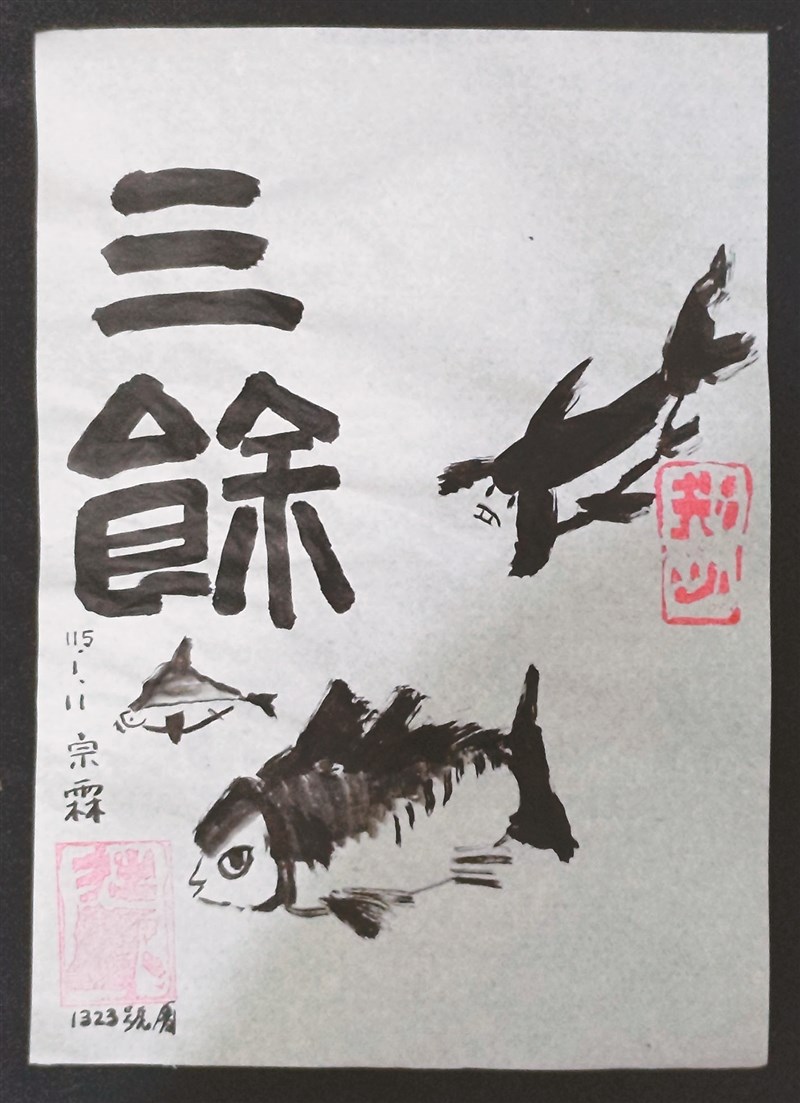 三餘
115.1.11 宗霖
1323號房